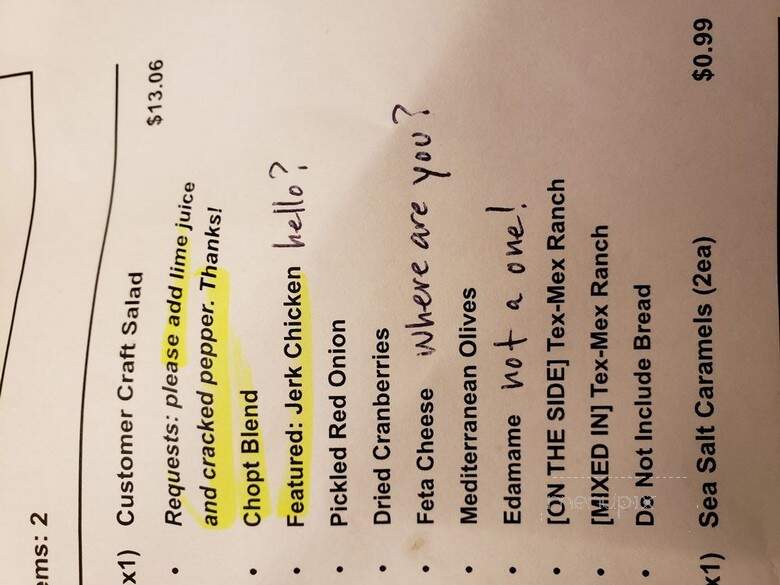 ems: 2
x1) Customer Craft Salad $13.06
• Requests: please add lime juice
and cracked pepper. Thanks!
• Chopt Blend
• Featured: Jerk Chicken hello?
• Pickled Red Onion
• Dried Cranberries
• Feta Cheese where are you?
• Mediterranean Olives
• Edamame not a one!
• [ON THE SIDE] Tex-Mex Ranch
• [MIXED IN] Tex-Mex Ranch
• Do Not Include Bread
x1) Sea Salt Caramels (2ea) $0.99